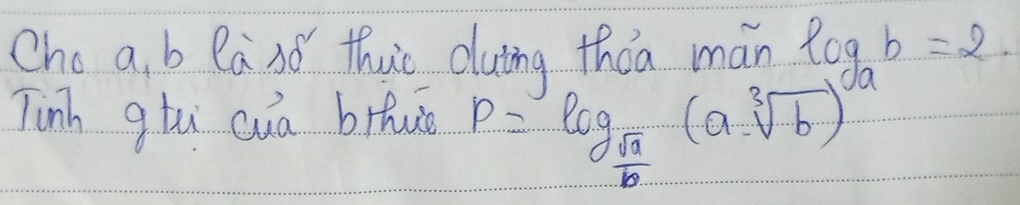 Cho a, b là số thực dương thỏa mãn log_a b = 2.
Tính gtrị của bthức P = log_{\frac{\sqrt{a}}{b}} (a.\sqrt[3]{b})